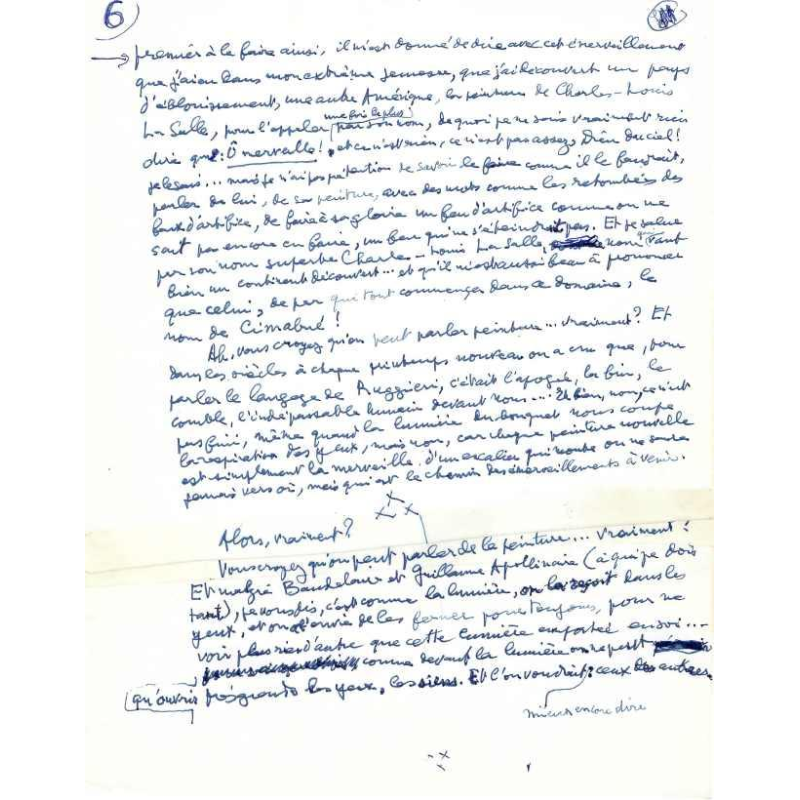 6
premier à le faire ainsi, il m'est donné de dire avec cet émerveillement
que j'ai eu dans mon extrême jeunesse, que j'ai découvert un pays
d'éblouissement, une autre Amérique, la peinture de Charles-Louis
une fois de plus
La Salle, pour l'appeler par son nom, de quoi je ne sais vraiment rien
dire que: Ô merveille! et ce n'est rien, ce n'est pas assez Dieu du ciel!
je le sais... mais je n'ai pas prétention de savoir le faire comme il le faudrait,
parler de lui, de sa peinture, avec des mots comme les retombées des
feux d'artifice, de faire à sa gloire un feu d'artifice comme on ne
sait pas encore en faire, un feu qui ne s'éteindrait pas. Et je salue
par son nom superbe Charles-Louis La Salle, nom Tant
bien un continent découvert... et qu'il m'est aussi beau à prononcer
que celui, de par qui tout commence dans ce domaine, le
nom de Cimabué!
Ah, vous croyez qu'on peut parler peinture... vraiment? Et
dans les siècles à chaque printemps nouveau on a cru que, pour
parler le langage de Ruggieri, c'était l'apogée, la fin, le
comble, l'indépassable humain devant nous...! Eh bien, non, ce n'est
pas fini, même quand la lumière du bouquet nous coupe
la respiration des yeux, mais non, car chaque peinture nouvelle
est simplement la merveille, d'un escalier qui monte on ne saura
jamais vers où, mais qui est le chemin des émerveillements à venir.
Alors, vraiment?
Vous croyez qu'on peut parler de la peinture... vraiment?
Et malgré Baudelaire et Guillaume Apollinaire (à qui je dois
tant), je vous dis, c'est comme la lumière, on la reçoit dans les
yeux, et on a envie de les fermer pour toujours, pour ne
voir plus rien d'autre que cette lumière emportée en soi...
comme devant la lumière on ne peut
qu'ouvrir très grands les yeux, les siens. Et l'on voudrait: ceux des autres.
mieux encore dire